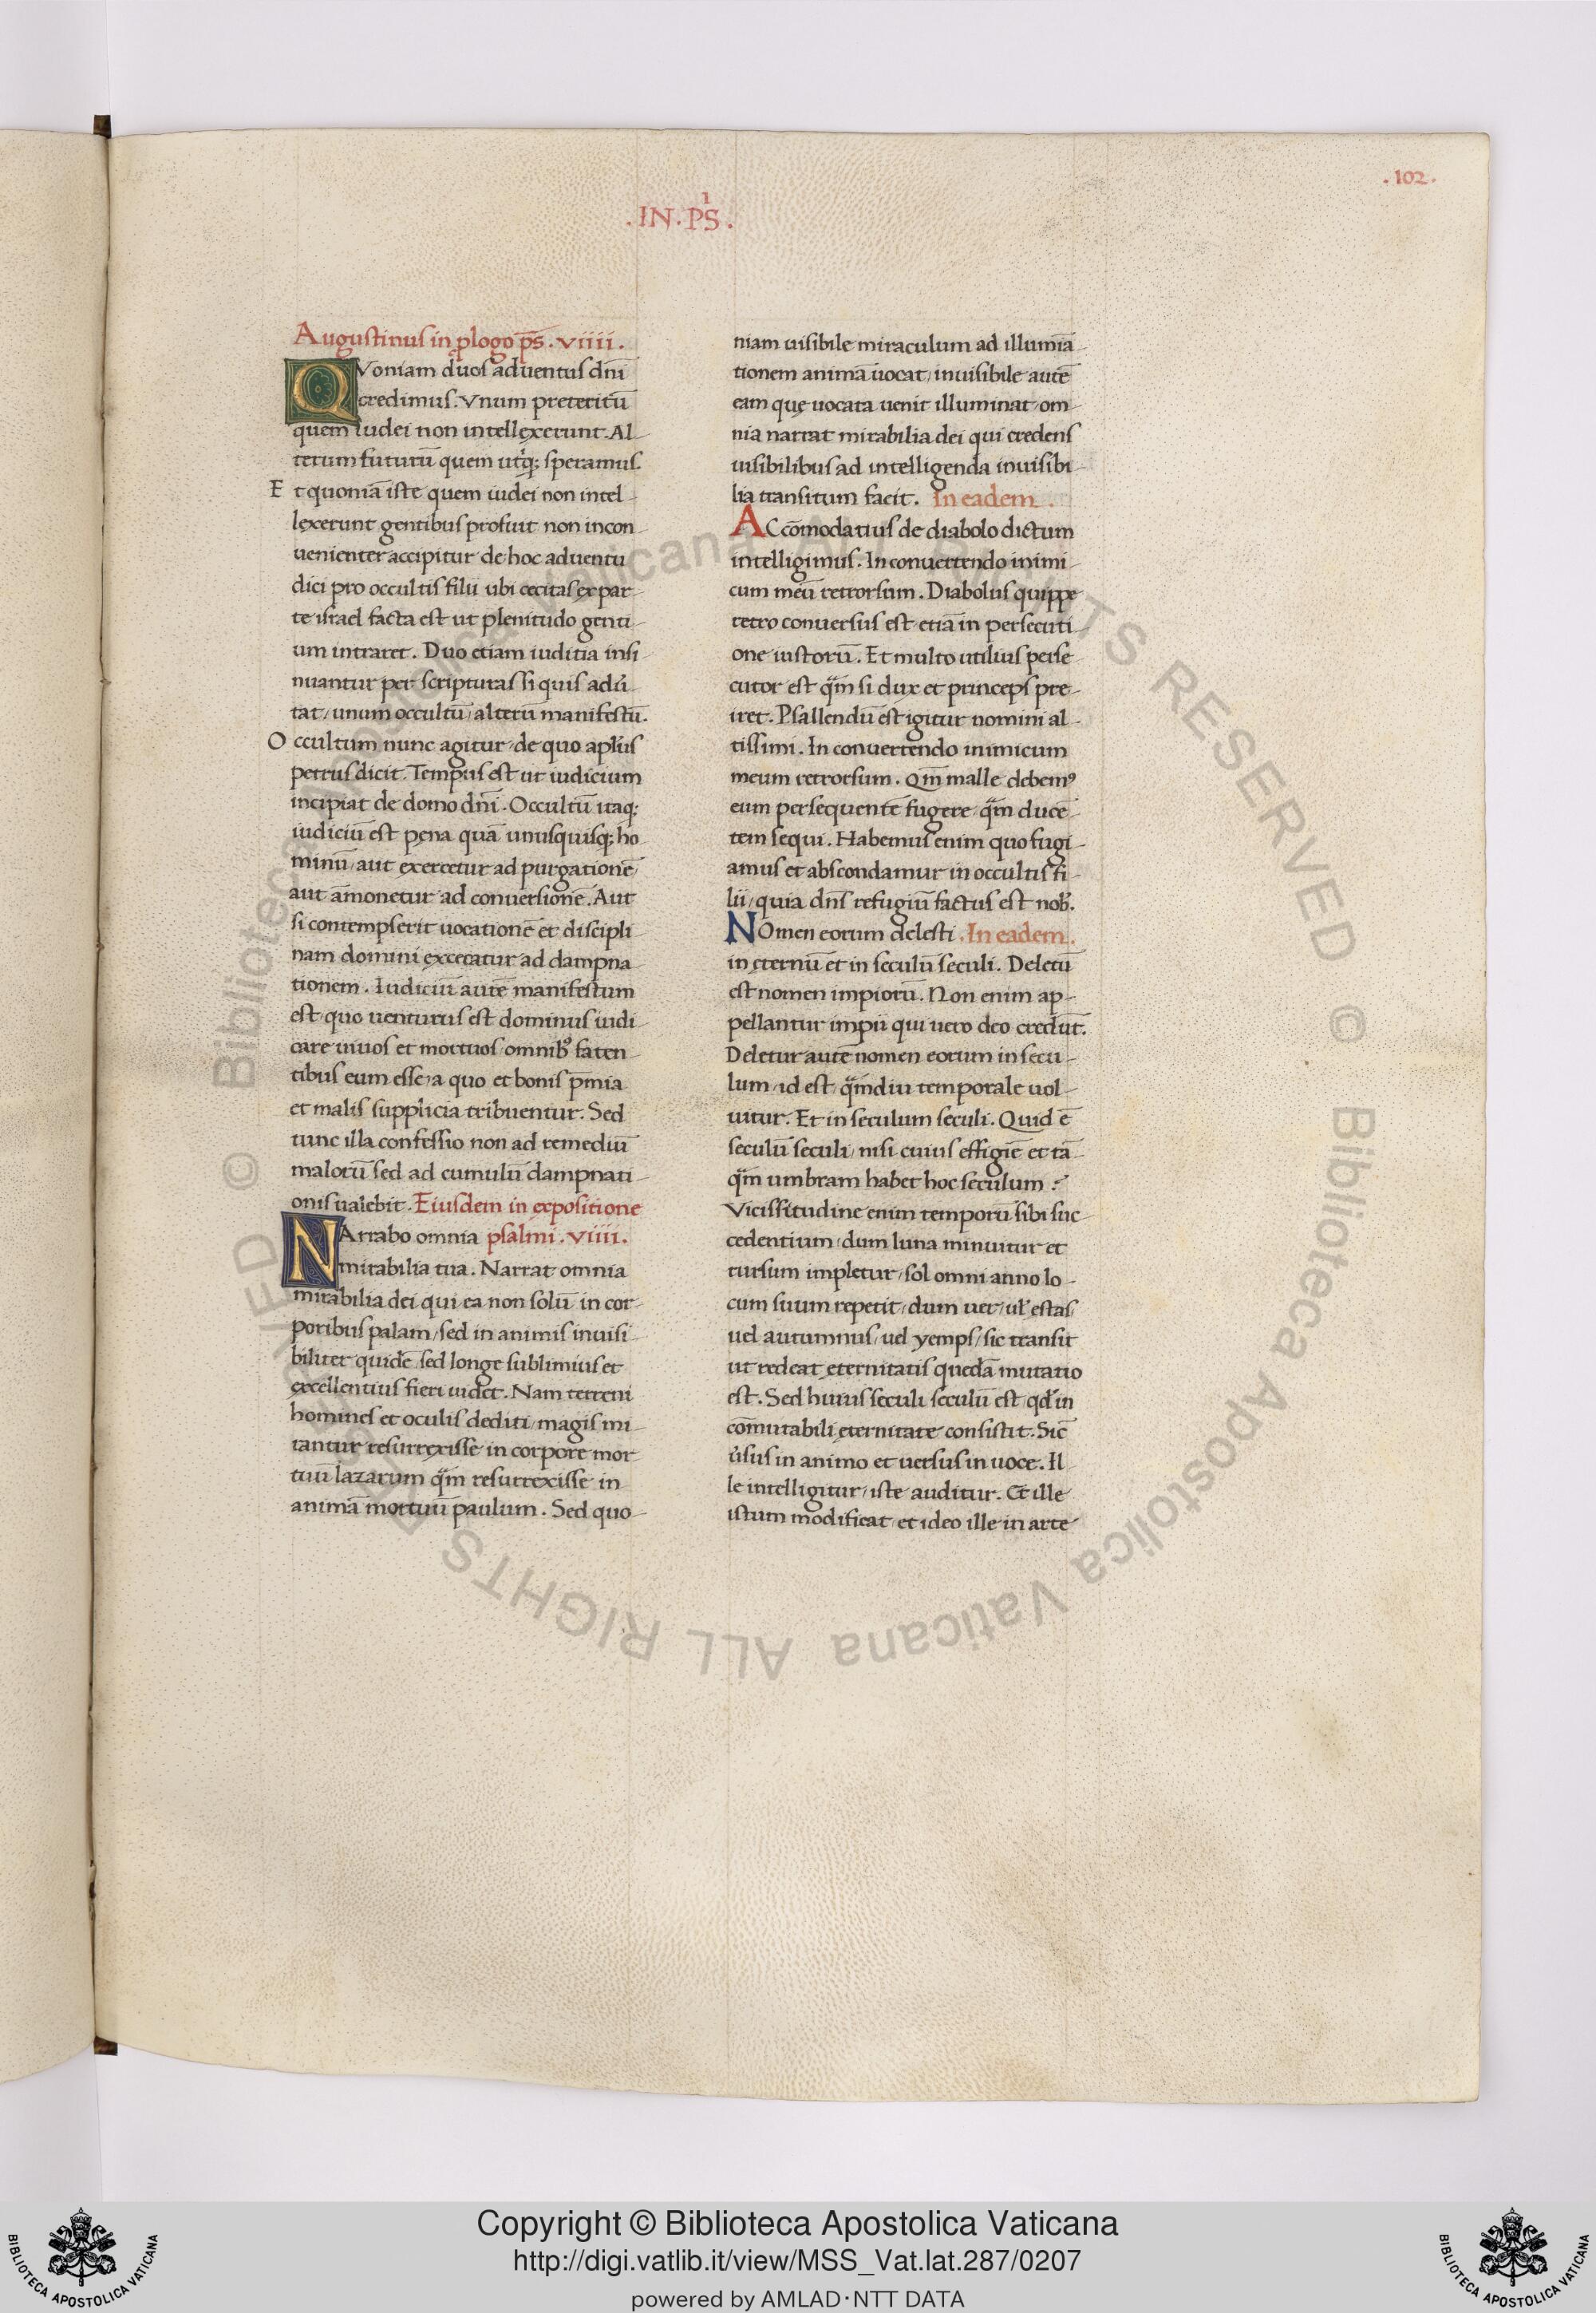 .102.
.IN.PS̄.
Augustinus in ꝓlogo ps̄. viiii.
QVoniam duos aduentus dn̄i
credimus. Vnum preteritū
quem iudei non intellexerunt. Al-
terum futurū quem utq; speramus.
Et quoniā iste quem iudei non intel-
lexerunt gentibus profuit non incon-
uenienter accipitur de hoc aduentu
dici pro occultis filii ubi cecitas ex par-
te israel facta est ut plenitudo genti-
um intraret. Duo etiam iuditia insi-
nuantur per scripturas si quis aduͥ-
tat, unum occultū, alterū manifestū.
Occultum nunc agitur, de quo apl'us
petrus dicit. Tempus est ut iudicium
incipiat de domo dn̄i. Occultū itaq;
iudiciū est pęna quā unusquisq; ho-
minū, aut exercetur ad purgationē,
aut am̄onetur ad conuersionē. Aut
si contempserit uocationē et discipli-
nam domini excecatur ad dampna-
tionem. Iudiciū autē manifestum
est, quo uenturus est dominus iudi-
care uiuos et mortuos, omnibꝰ faten-
tibus eum esse, a quo et bonis p̄mia
et malis supplicia tribuentur. Sed
tunc illa confessio non ad remediū
malorū sed ad cumulū dampnati-
onis ualebit. Eiusdem in expositione
NArrabo omnia psalmi. viiii.
mirabilia tua. Narrat omnia
mirabilia dei qui ea non solū in cor-
poribus palam, sed in animis inuisi-
biliter quidē, sed longe sublimius et
excellentius fieri uidet. Nam terreni
homines et oculis dediti, magis mi-
rantur resurrexisse in corpore mor-
tuū lazarum qͣm resurrexisse in
animā mortuū paulum. Sed quo-
niam uisibile miraculum ad illumiā-
tionem animā uocat, inuisibile autē
eam quę uocata uenit illuminat, om-
nia narrat mirabilia dei qui credens
uisibilibus ad intelligenda inuisibi-
lia transitum facit. In eadem.
ACcōmodatius de diabolo dictum
intelligimus. In conuertendo inimi-
cum meū retrorsum. Diabolus quippe
retro conuersus est, etiā in persecuti-
one iustorū. Et multo utilius perse-
cutor est qͣm si dux et princeps pre-
iret. Psallendū est igitur nomini al-
tissimi. In conuertendo inimicum
meum retrorsum. Qm̄ malle debemꝰ
eum persequentē fugere, qͣm ducē-
tem sequi. Habemus enim quo fugi-
amus et abscondamur in occultis fi-
lii, quia dn̄s refugiū factus est nob'.
NOmen eorum delesti. In eadem.
in ęternū et in seculū seculi. Deletū
est nomen impiorū. Non enim ap-
pellantur impii qui uero deo credūt.
Deletur autē nomen eorum in secu-
lum, id est, qͣmdiu temporale uol-
uitur. Et in seculum seculi. Quid ē
seculū seculi, nisi cuius effigiē et tā-
qͣm umbram habet hoc seculum?
Vicissitudine enim temporū sibi suc-
cedentium, dum luna minuitur et
rursum impletur, sol omni anno lo-
cum suum repetit, dum uer, ul' estas
uel autumnus, uel yemps, sic transit
ut redeat, ęternitatis quedā mutatio
est. Sed huius seculi seculū est, qd' in
cōmutabili ęternitate consistit. Sic̄
uͥsus in animo et uersus in uoce. Il-
le intelligitur, iste auditur. Et ille
istum modificat, et ideo ille in arte
Copyright © Biblioteca Apostolica Vaticana
http://digi.vatlib.it/view/MSS_Vat.lat.287/0207
powered by AMLAD･NTT DATA
BIBLIOTECA APOSTOLICA VATICANA
BIBLIOTECA APOSTOLICA VATICANA
© Biblioteca Apostolica Vaticana ALL RIGHTS RESERVED © Biblioteca Apostolica Vaticana ALL RIGHTS RESERVED